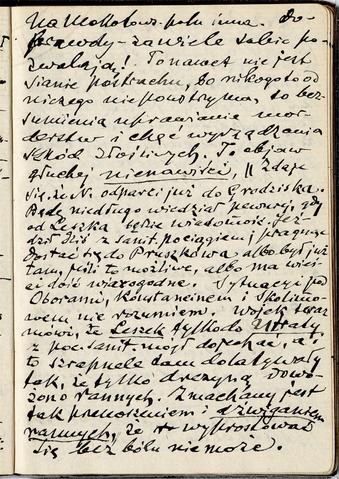 na Mokotows. polu inna. Do-
prawdy - zawiele sobie po-
zwalają! To nawet nie jest
sianie postrachu, bo nikogo to od
niczego nie powstrzyma, to bez-
sumienia uprawianie mor-
derstw i chęć wyrządzania
szkód złośliwych. To objaw
głuchej nienawiści, || Zdaje
się, że N. odparci już do Grodziska.
Będę niedługo wiedział pewniej, gdy
od Leszka będzie wiadomość. Jeź-
dził dziś z sanit. pociągiem, pragnąc
dostać się do Pruszkowa albo był już
tam, jeśli to możliwe, albo ma wieś-
ci dość wiarogodne. Sytuacja pod
Oborami, Konstancinem i Skolimo-
wem nie rozumiem. Wojek teraz
mówi, że Leszek tylko do Utraty
z poc. sanit. mógł dojechać, a i
to szrapnele tam dolatywały
tak, że tylko drezyną dowo-
żono rannych. Zmachany jest
tak przenoszeniem i dźwiganiem
rannych, że wyprostować
się bez bólu nie może.